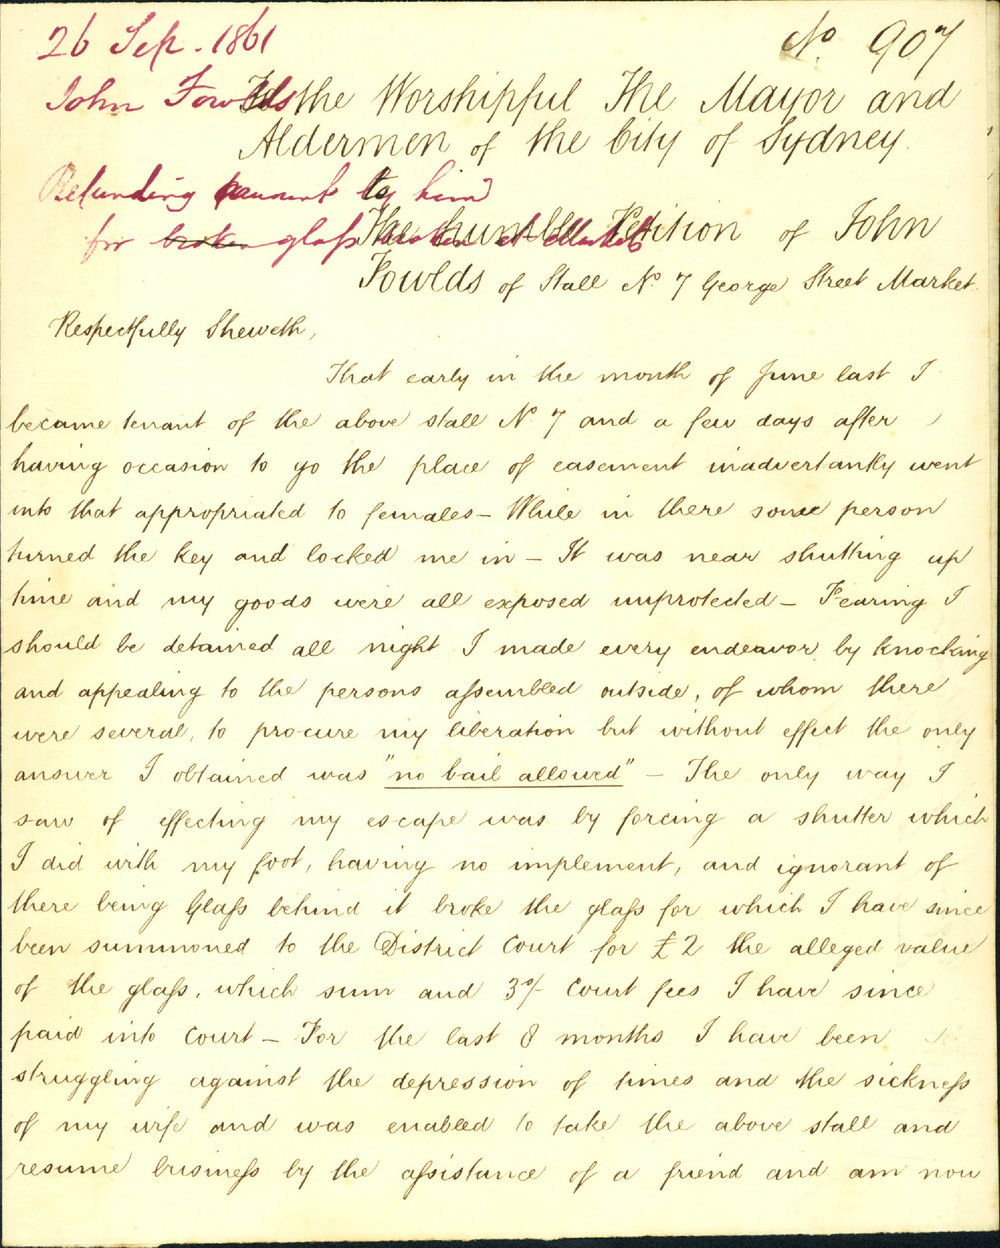 26 Sep. 1861
No. 907
John Fowlds
To the Worshipful The Mayor and
Aldermen of the City of Sydney.
Refunding amount to him
for broken glass broken at Markets
The humble Petition of John
Fowlds of Stall No 7 George Street Market.
Respectfully Sheweth,
That early in the month of June last I
became tenant of the above stall No 7 and a few days after
having occasion to go the place of easement inadvertantly went
into that appropriated to females – While in there some person
turned the key and locked me in – It was near shutting up
time and my goods were all exposed unprotected – Fearing I
should be detained all night I made every endeavor by knocking
and appealing to the persons assembled outside, of whom there
were several, to procure my liberation but without effect the only
answer I obtained was "no bail allowed" – The only way I
saw of effecting my escape was by forcing a shutter which
I did with my foot, having no implement, and ignorant of
there being Glass behind it broke the glass for which I have since
been summoned to the District Court for £2 the alleged value
of the glass, which sum and 3s/- Court fees I have since
paid into Court – For the last 8 months I have been
struggling against the depression of times and the sickness
of my wife and was enabled to take the above stall and
resume business by the assistance of a friend and am now